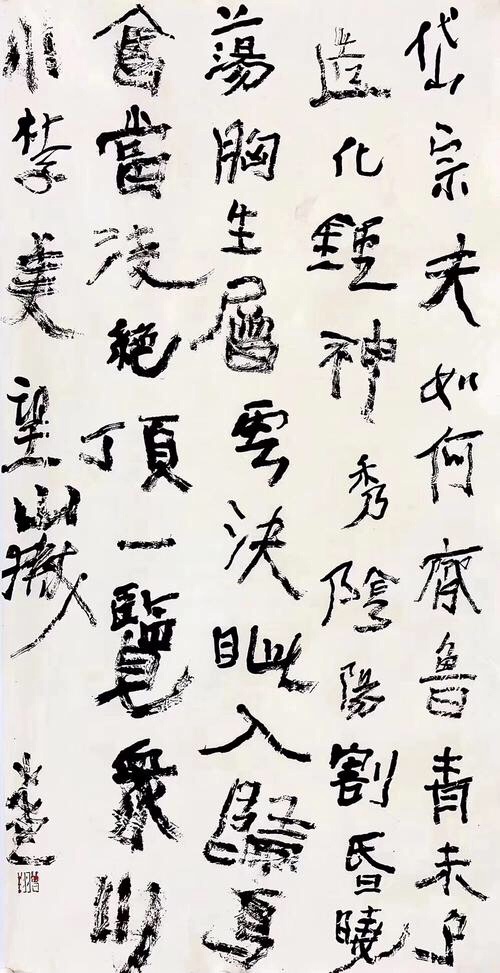 岱宗夫如何齊魯青未了
造化鍾神秀陰陽割昏曉
蕩胸生層雲決眦入歸鳥
會當凌絕頂一覽眾山
小杜子美望嶽